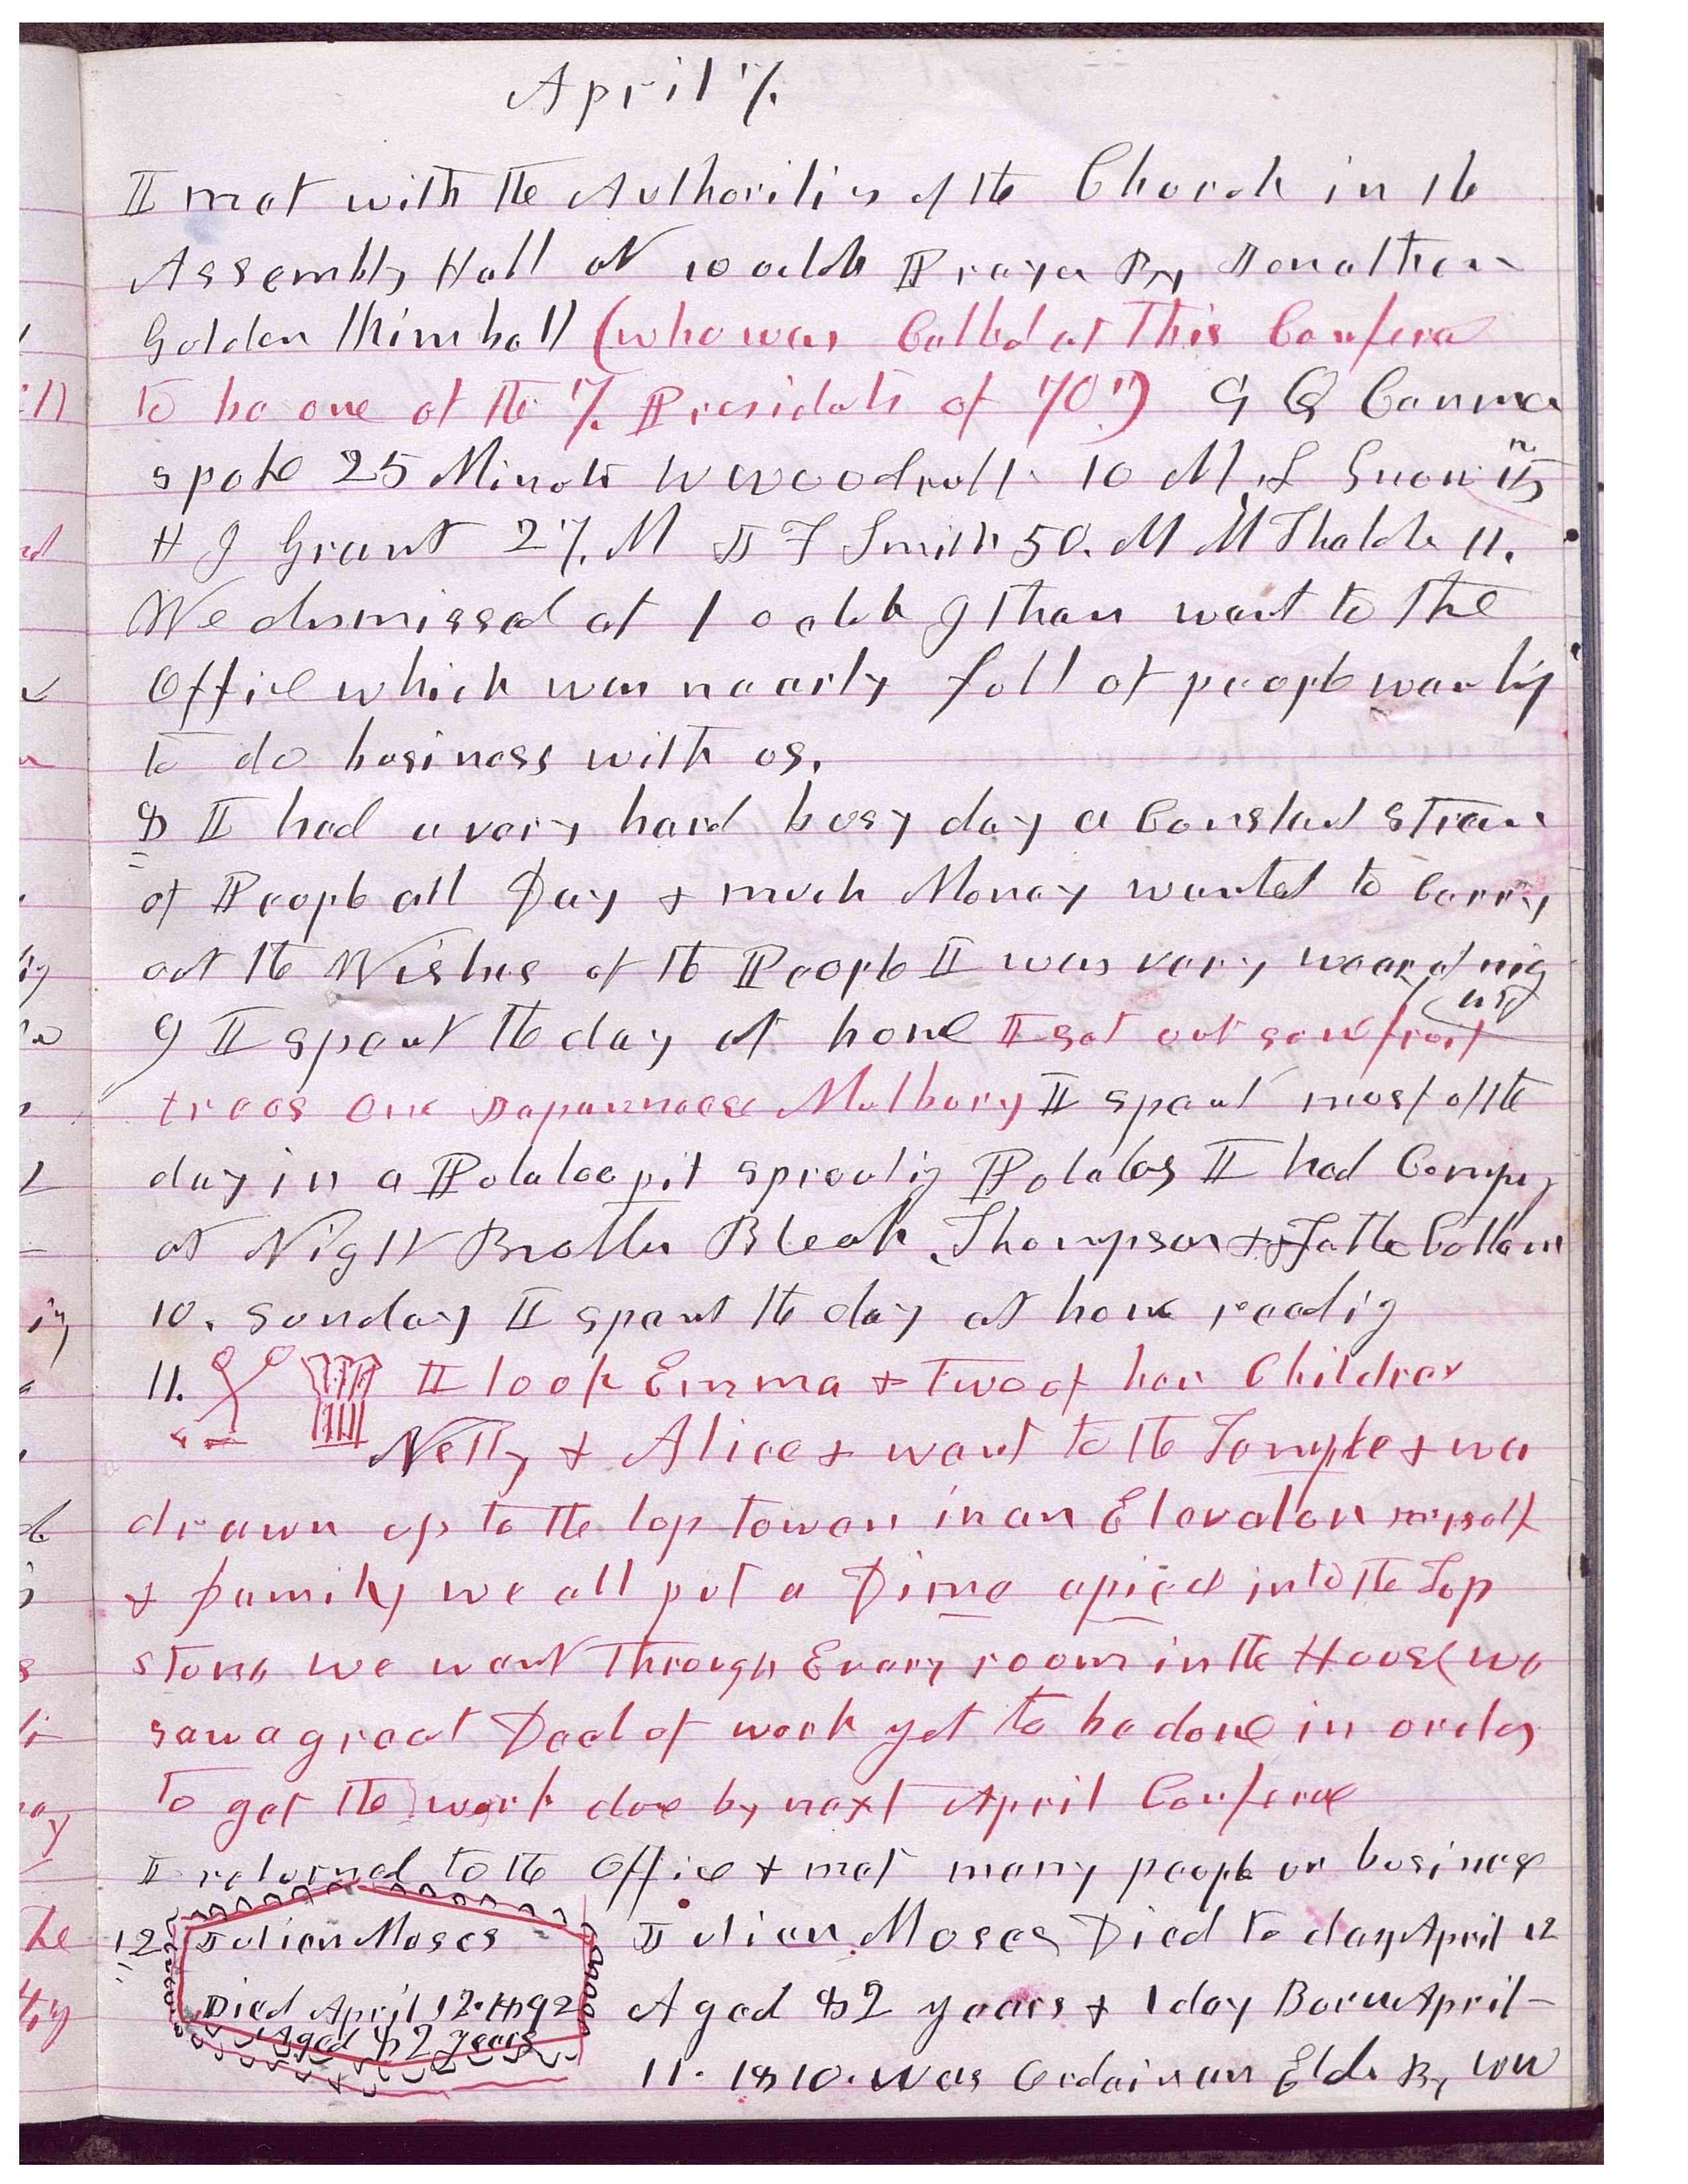 April 7.
I met with the Authorities of the Church in the
Assembly Hall at 10 oclok Prayer By Jonathan
Golden Kimball (who was Called at this Conferen
to be one of the 7. Presidets of 70s) G Q Cannon
spoke 25 Minuts W Woodruff 10 M, L Snow 15 m
H J Grant 27. M J F Smith 50. M M Thatch 11.
We dismissed at 1 oclok I then went to the
Office which was nearly full of people wantig
to do business with us.
8 I had a very hard busy day a Constant stream
of People all Day & much Money wanted to carry
out the Wishes of the People I was very weary at nig
ht
9 I spent the day at home I set out some fruit
trees One Japanneese Mulbery I spent most of the
day in a Potatoe pit sprouting Potatoes I had Compny
at Night Brother Bleak Thompson & Father Cottam
10. Sunday I spent the day at home readig
11. I took Emma & Two of her Children
Nelly & Alice & went to the Temple & was
drawn up to the top tower in an Elevator myself
& family we all put a Dime apiece into the Top
stone we went through Every room in the House we
saw a great Deal of work yet to be done in order
to get the work done by next April Conferce
I returned to the Office & met many people on business
12 Julian Moses
Died April 12. 1892
Aged 82 years
Julian Moses Died to day April 12
Aged 82 years & 1 day Born April
11. 1810. Was Ordain an Elder By WW